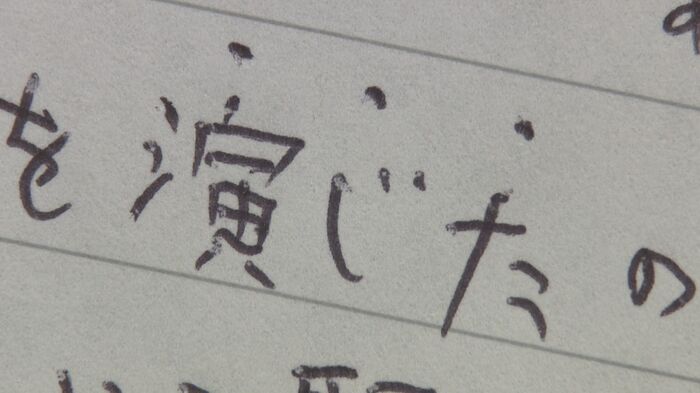 を演じたの